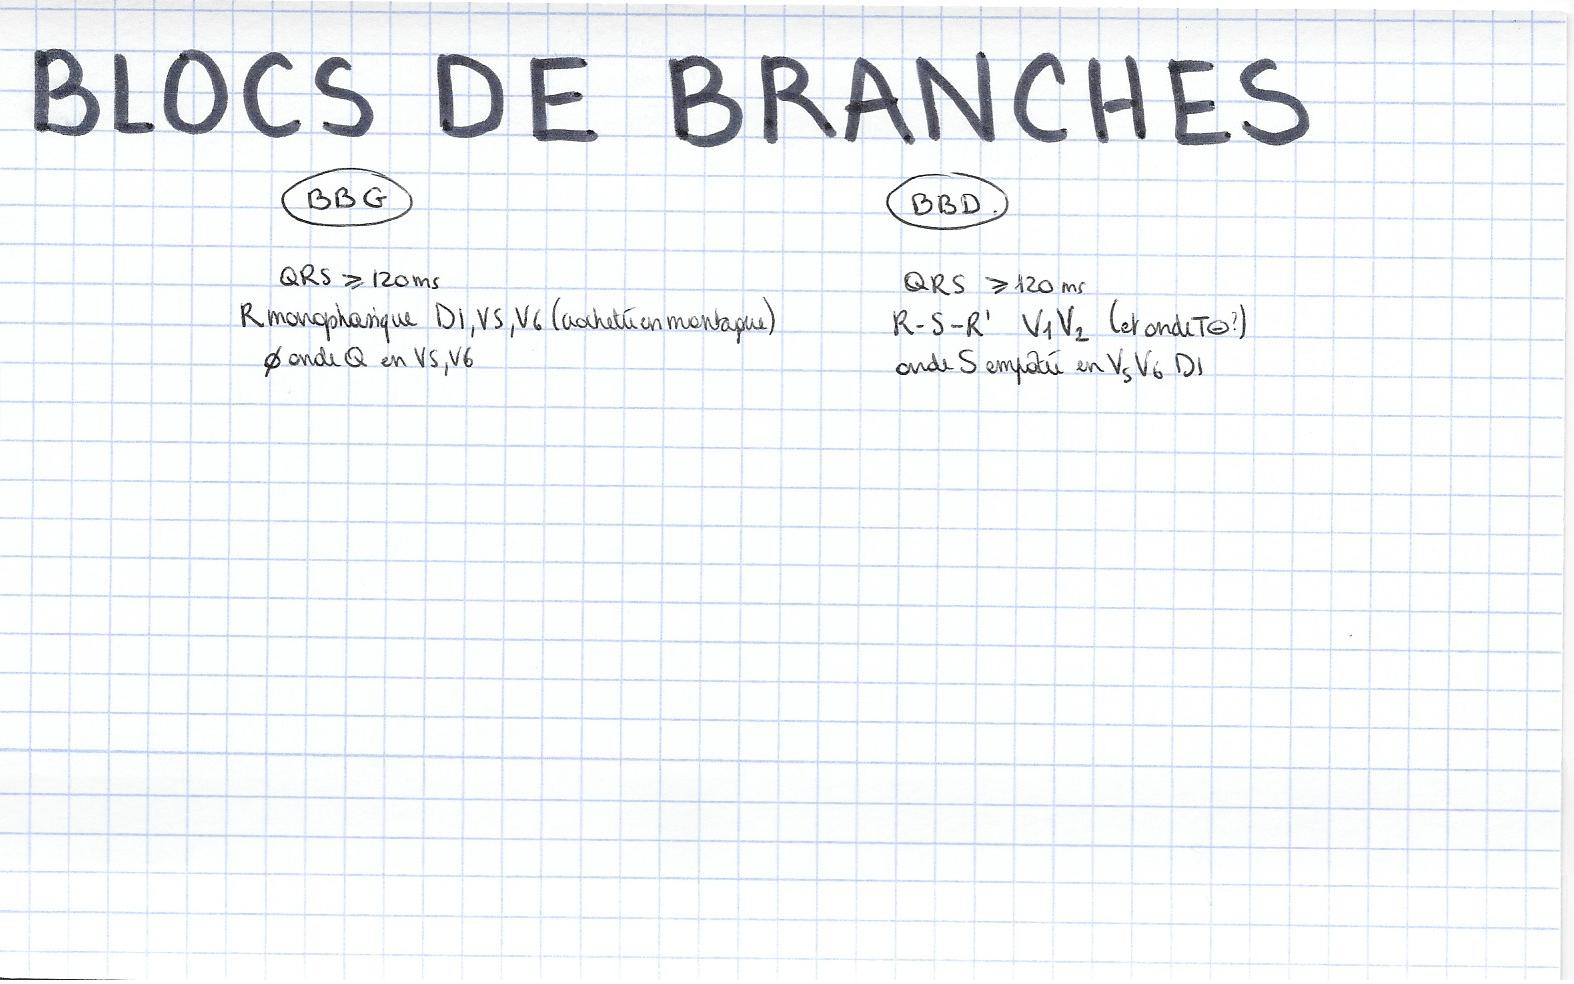 BLOCS DE BRANCHES
BBG
QRS ⩾ 120 ms
R monophasique D1, V5, V6 (crocheté en montagne)
ø onde Q en V5, V6
BBD.
QRS ⩾ 120 ms
R-S-R' V1 V2 (et onde T ⊖ ?)
onde S empâtée en V5 V6 D1